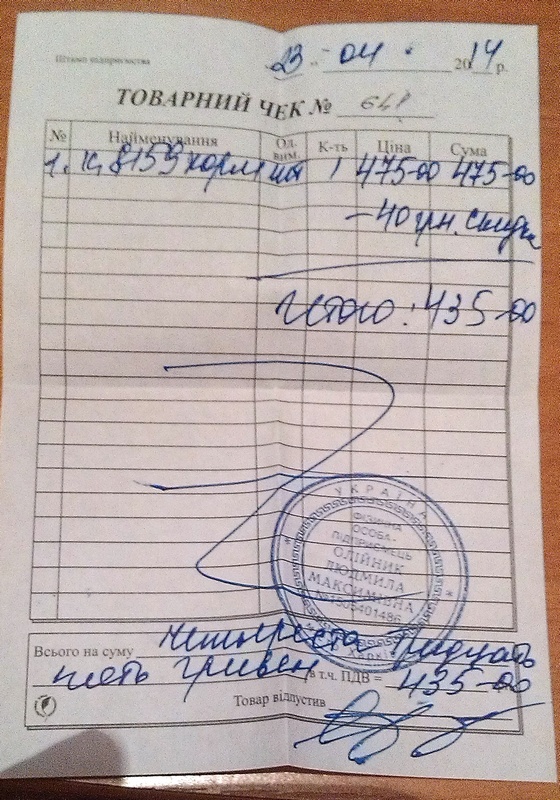 Штамп підприємства
23 " 04 . 2014 р.
ТОВАРНИЙ ЧЕК № 641
№ Найменування Од. вим. К-ть Ціна Сума
1. К. 8159 корм 1 475-00 475-00
- 40 грн. скидка
Итого: 435-00
УКРАЇНА
ФІЗИЧНА
ОСОБА-
ПІДПРИЄМЕЦЬ
ОЛІЙНИК
ЛЮДМИЛА
МАКСИМІВНА
№1505401486
Всього на суму четыреста тридцать
пять гривен в т.ч. ПДВ = 435-00
Товар відпустив